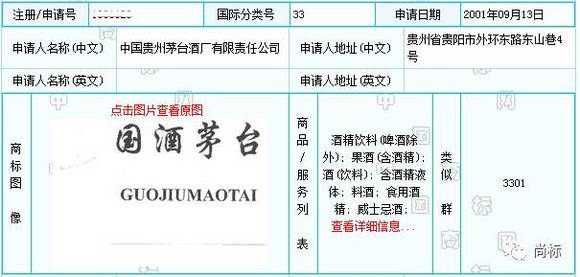 注册/申请号 国际分类号 33 申请日期 2001年09月13日
申请人名称(中文) 中国贵州茅台酒厂有限责任公司 申请人地址(中文) 贵州省贵阳市外环东路东山巷4
号
申请人名称(英文) 申请人地址(英文)
商标图像
点击图片查看原图
国酒茅台
GUOJIUMAOTAI
商品/服务列表
酒精饮料(啤酒除
外); 果酒(含酒精);
酒(饮料); 含酒精液
体; 料酒; 食用酒
精; 威士忌酒;
查看详细信息...
类似群
3301
尚标